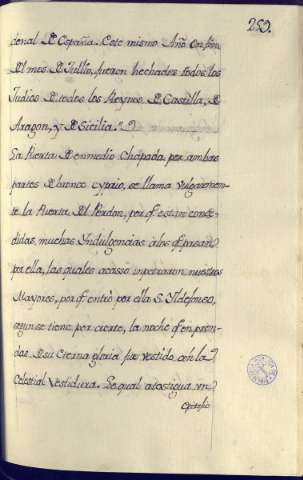 259.
denal D España. Este mismo Año en fin
Del mes D Jullio, fueron hechados todos los
Judios D todos los Reynos, D Castilla, D
Aragon, y D Sicilia."
La Puerta D enmedio Chapada, por ambas
partes D bronce cyprio, se llama vulgarmen-
te la Puerta Del Perdon, por q. estan conce-
didas, muchas Indulgencias a los q. pasan
por ella, las quales acasso inpetraron nuestros
Mayores, por q. entró por ella S. Yldefonso,
segun se tiene por cierto, la noche q. en pren-
das D su Eterna gloria fue vestido, con la
Celestial Vestidura. Lo qual atestigua vn
Epitafio